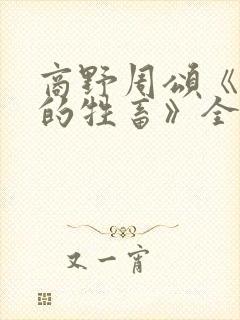 高野周颂《
的牲畜》全
又一宵